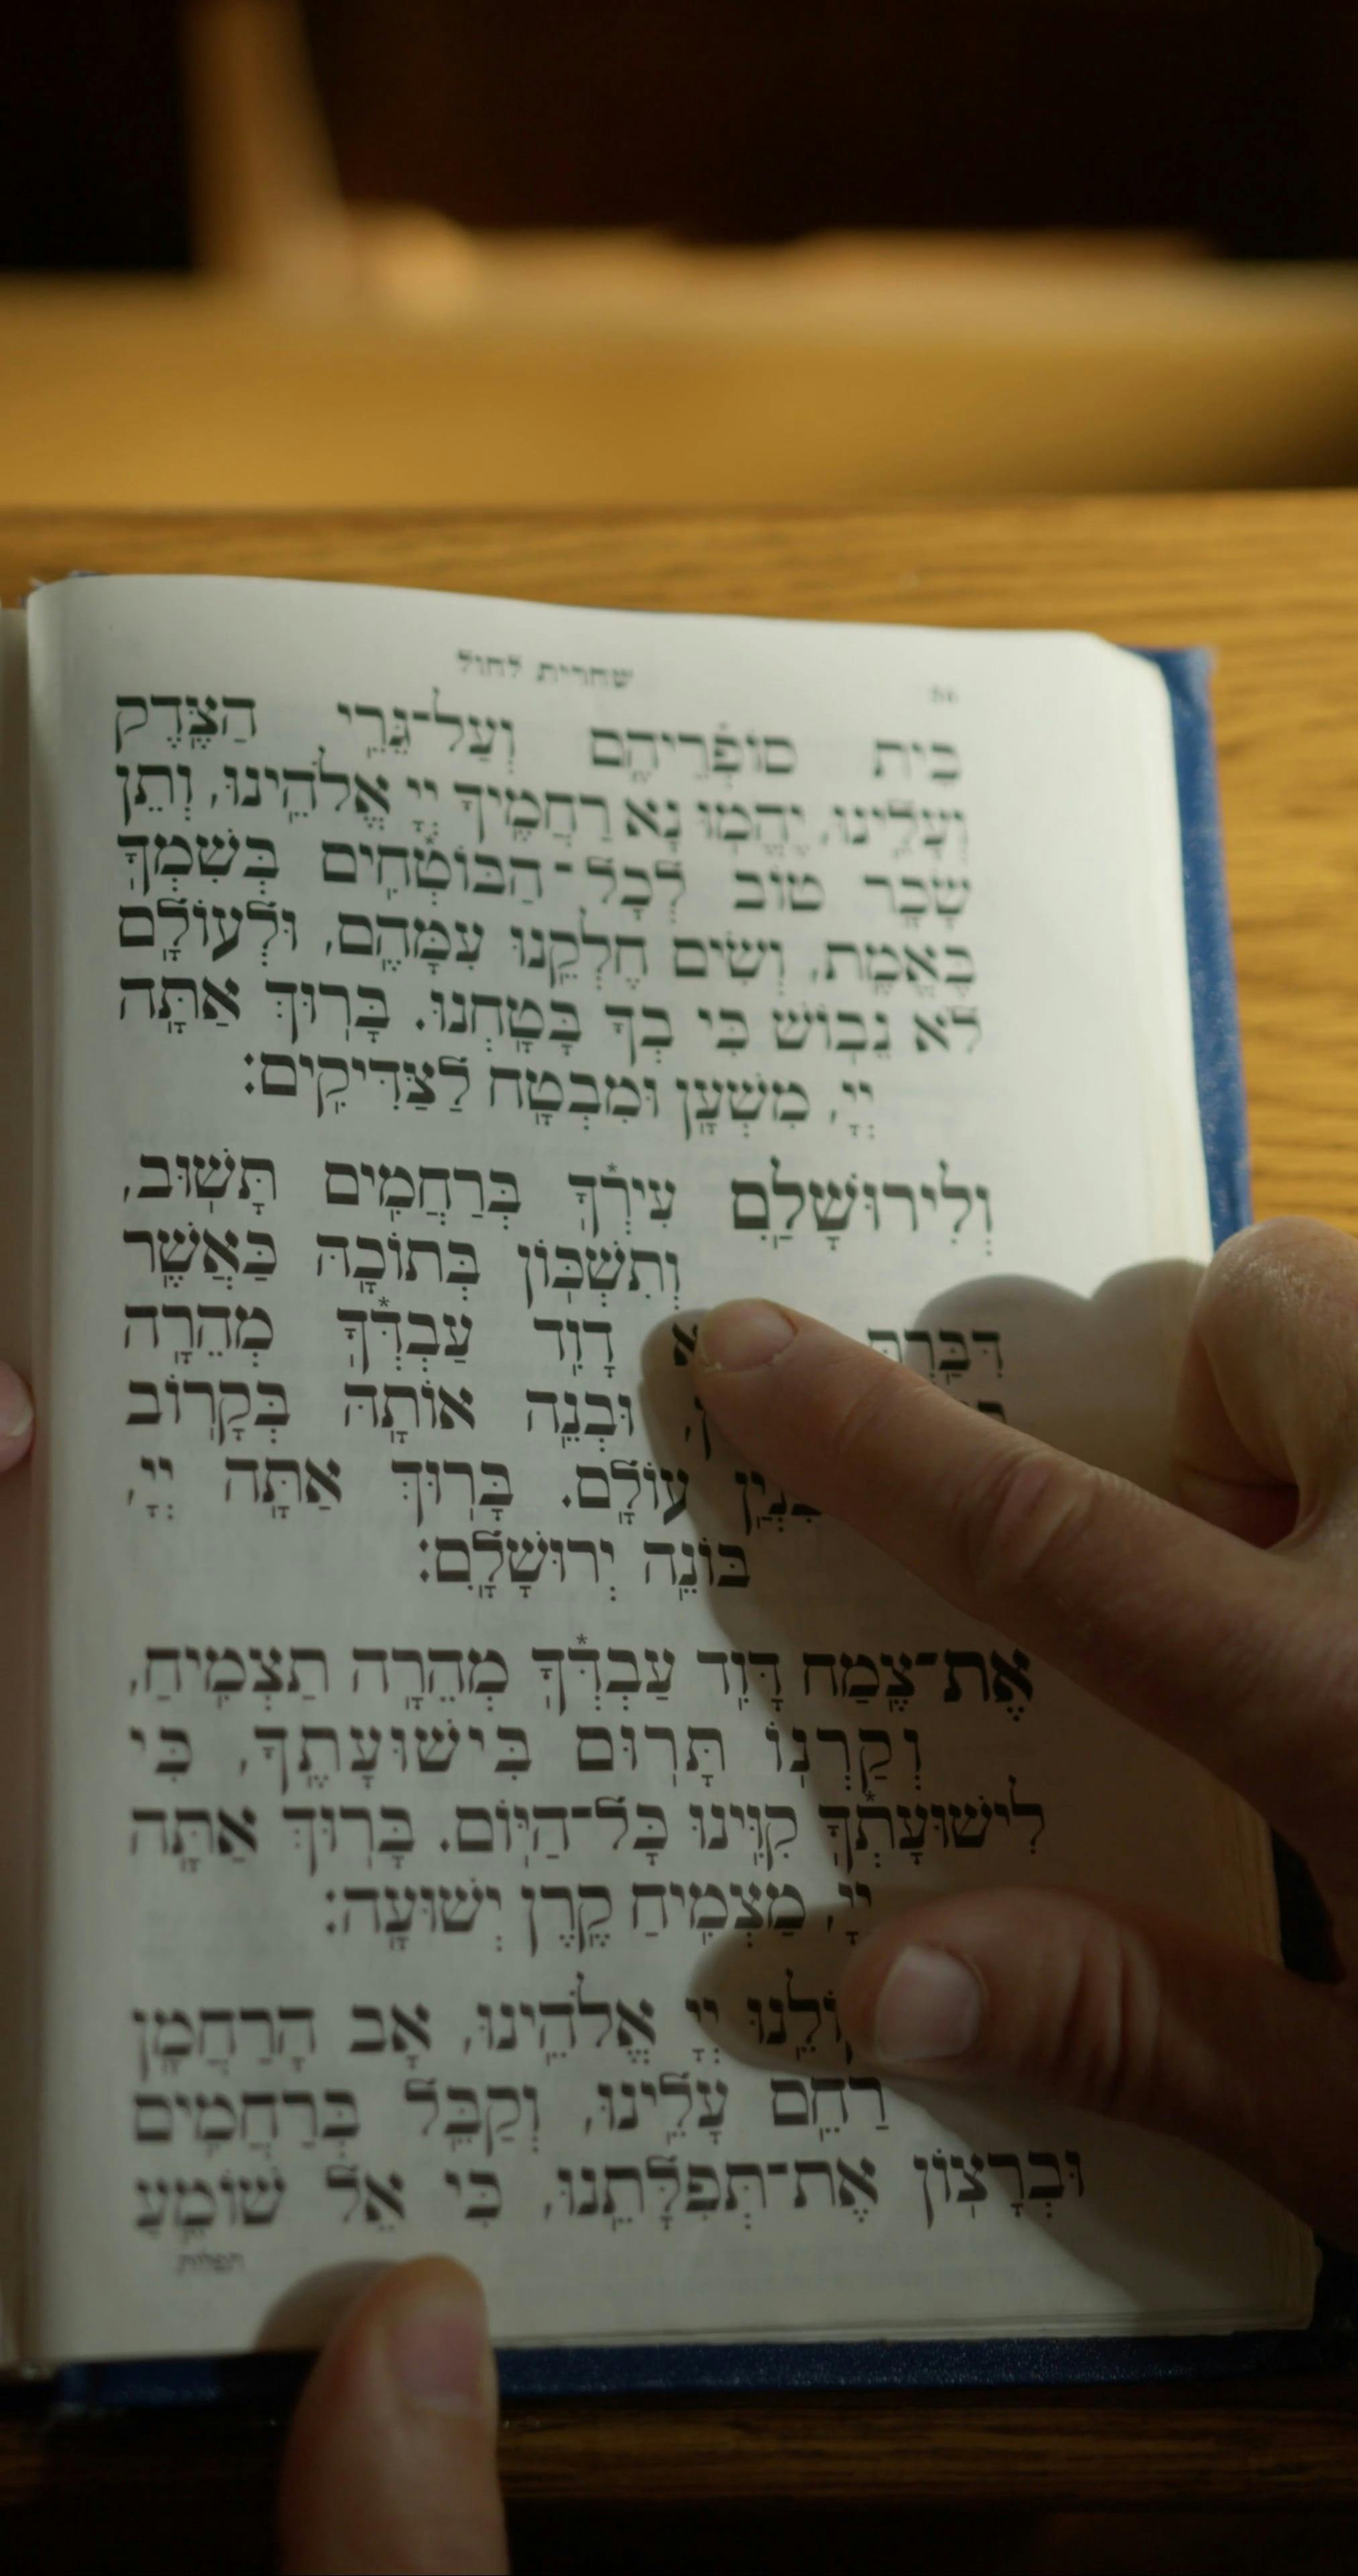 שחרית לחול 56
בֵּית סוֹפְרֵיהֶם וְעַל־גֵּרֵי הַצֶּדֶק
וְעָלֵינוּ, יֶהֱמוּ נָא רַחֲמֶיךָ יְיָ אֱלֹהֵינוּ, וְתֵן
שָׂכָר טוֹב לְכָל־הַבּוֹטְחִים בְּשִׁמְךָ
בֶּאֱמֶת, וְשִׂים חֶלְקֵנוּ עִמָּהֶם, וּלְעוֹלָם
לֹא נֵבוֹשׁ כִּי בְךָ בָּטָחְנוּ. בָּרוּךְ אַתָּה
יְיָ, מִשְׁעָן וּמִבְטָח לַצַּדִּיקִים:
וְלִירוּשָׁלַיִם עִירְךָ בְּרַחֲמִים תָּשׁוּב,
וְתִשְׁכּוֹן בְּתוֹכָהּ כַּאֲשֶׁר
דִּבַּרְתָּ דָוִד עַבְדְּךָ מְהֵרָה
וּבְנֵה אוֹתָהּ בְּקָרוֹב
בִּנְיַן עוֹלָם. בָּרוּךְ אַתָּה יְיָ,
בּוֹנֵה יְרוּשָׁלָיִם:
אֶת־צֶמַח דָּוִד עַבְדְּךָ מְהֵרָה תַצְמִיחַ,
וְקַרְנוֹ תָּרוּם בִּישׁוּעָתֶךָ, כִּי
לִישׁוּעָתְךָ קִוִּינוּ כָּל־הַיּוֹם. בָּרוּךְ אַתָּה
יְיָ, מַצְמִיחַ קֶרֶן יְשׁוּעָה:
יְיָ אֱלֹהֵינוּ, אָב הָרַחֲמָן
רַחֵם עָלֵינוּ, וְקַבֵּל בְּרַחֲמִים
וּבְרָצוֹן אֶת־תְּפִלָּתֵנוּ, כִּי אֵל שׁוֹמֵעַ
תפלות